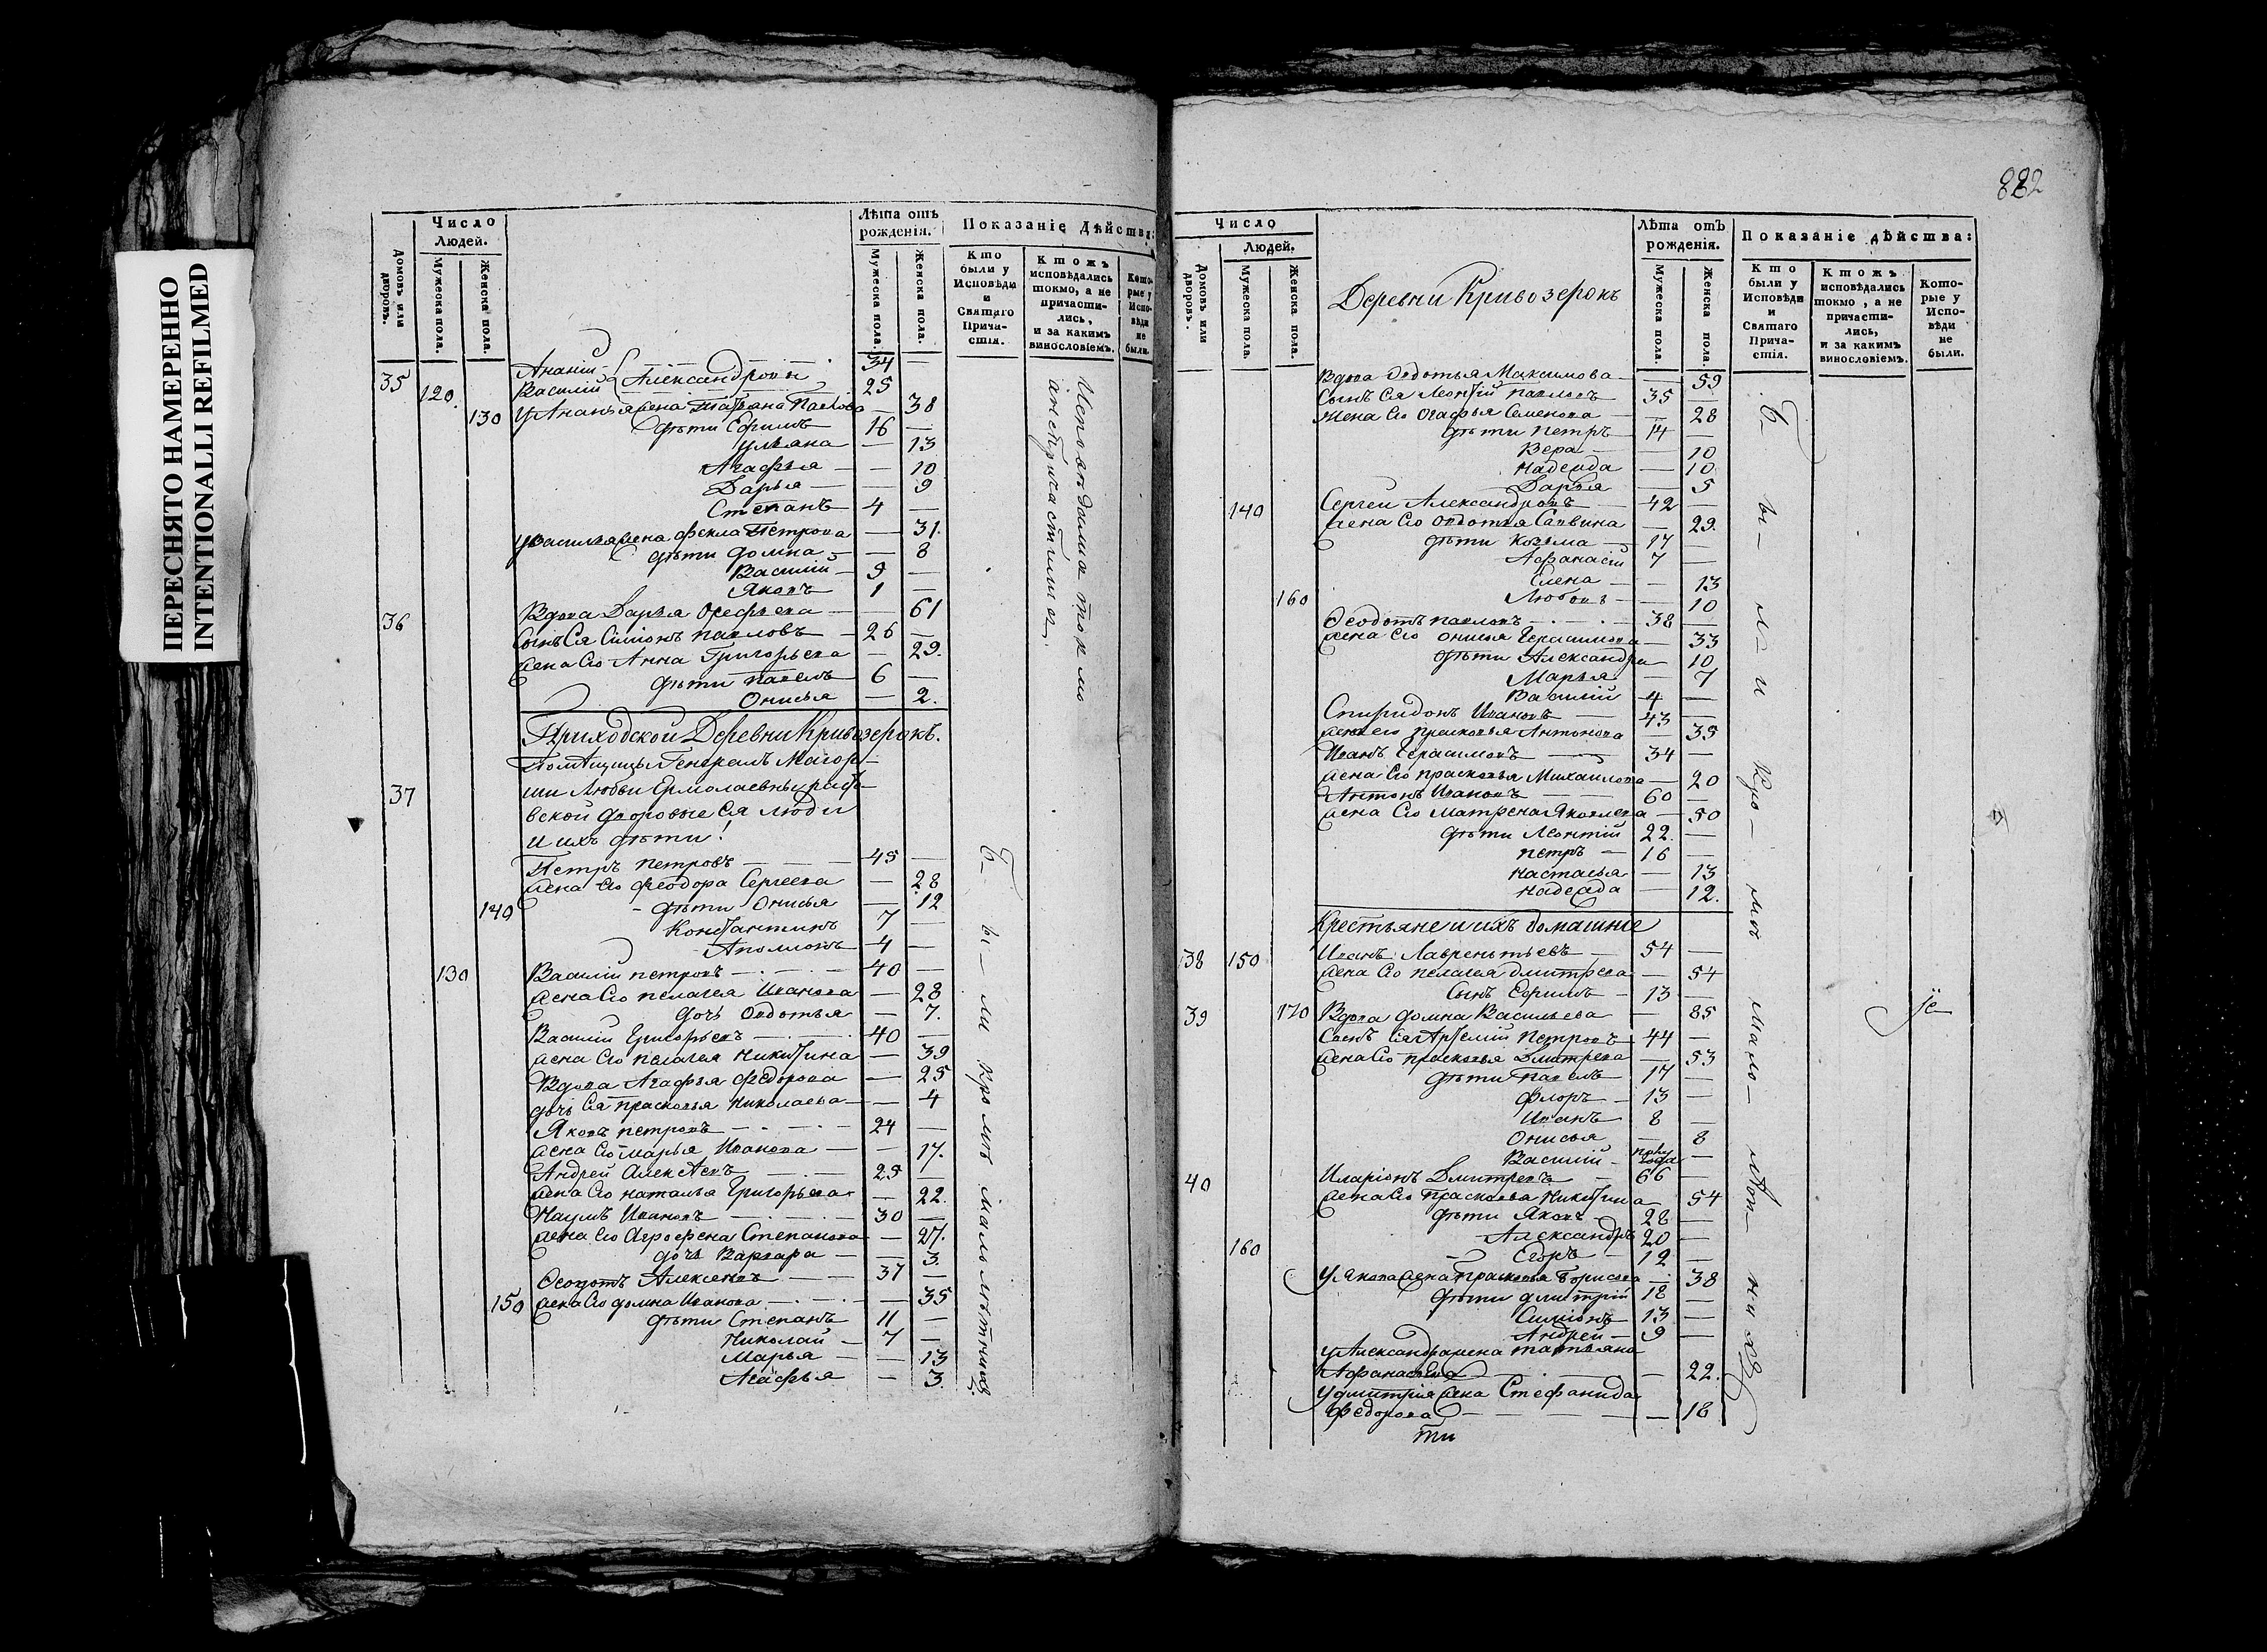 ПЕРЕСНЯТО НАМЕРЕННО
INTENTIONALLI REFILMED
Число
Людей.
Домовъ или дворовъ.
Мужеска пола.
Женска пола.
Лѣта отъ рожденія.
Мужеска пола.
Женска пола.
Показаніе дѣйства:
Кто были у Исповѣди и Святаго Причастія.
Ктожъ исповѣдались токмо, а не причастились, и за какимъ винословіемъ.
Которые у Исповѣди не были.
Ананій — Александровы 34 —
35 120 Василій 25
130 у Ананья жена Татьяна Павлова — 38
дѣти Ефимъ 16 —
Ульяна — 13
Агафья — 10
Дарья — 9
Степанъ 4 —
у Василья жена Фекла Петрова — 31.
дѣти Домна — 8
Василій 9 —
Яковъ 1 —
36 Вдова Дарья Осефьева — 61
Сынъ Ея Симіонъ Павловъ 26 —
жена Его Анна Григорьева — 29.
дѣти Павелъ 6 —
Онисья — 2.
Исповѣдомы токмо
а не причастились.
Приходской Деревни Кривозерокъ.
Помѣщицы Генералъ Маіор-
37 ши Любви Ермолаевны
вской дворовые Ея люди
и ихъ дѣти!
Петръ Петровъ 45 —
жена Его Феодора Сергеева — 28
140 дѣти Онисья — 12
Константинъ 7 —
Аполионъ 4 —
130 Василій Петровъ 40 —
жена Его Пелагея Иванова — 28
дочь Овдотья — 7.
Василій Григорьевъ 40 —
жена Его Пелагея Никитина — 39
Вдова Агафья Федорова — 25
дочь Ея Прасковья Николаева — 4
Яковъ Петровъ 24 —
жена Его Марья Иванова — 17.
Андрей Алексѣевъ 25 —
жена Его Наталья Григорьева — 22.
Наумъ Ивановъ 30 —
жена Его Агрофена Степанова — 27.
дочь Варвара — 3.
Феодотъ Алексеевъ 37 —
150 жена Его Домна Иванова — 35
дѣти Степанъ 11 —
Николай 7 —
Марья — 13
Агафья — 3.
Были кромѣ малолѣтнихъ
882
Число
Людей.
Домовъ или дворовъ.
Мужеска пола.
Женска пола.
Деревни Кривозерокъ
Лѣта отъ рожденія.
Мужеска пола.
Женска пола.
Показаніе дѣйства:
Кто были у Исповѣди и Святаго Причастія.
Ктожъ исповѣдались токмо, а не причастились, и за какимъ винословіемъ.
Которые у Исповѣди не были.
Вдова Овдотья Максимова — 59
Сынъ Ея Леонтій Павловъ 35 —
Жена Его Огафья Семенова — 28
дѣти Петръ 14 —
Вера — 10
Надежда — 10
Дарья — 5
140 Сергей Александровъ 42 —
жена Его Овдотья Саввина — 29.
дѣти Козьма 17 —
Афанасій 7 —
Елена — 13
160 Любовь — 10
Феодотъ Павловъ 38 —
жена Его Онисья Герасимова — 33
дѣти Александра — 10
Марья — 7
Василій 4 —
Спиридонъ Ивановъ 43 —
жена его Прасковья Антонова — 35
Иванъ Герасимовъ 34 —
жена Его Прасковья Михаилова — 20
Антонъ Ивановъ 60 —
жена Его Матрена Яковлева — 50
дѣти Леонтій 22. —
Петръ 16 —
Настасья — 13
Надежда — 12.
Крестьяне и ихъ домашніе
38 150 Иванъ Лаврентьевъ 54 —
жена Его Пелагея Дмитрева — 54
Сынъ Ефимъ 13 —
39 170 Вдова Домна Васильева — 85
Сынъ Ея Артемій Петровъ 44 —
жена Его Прасковья Дмитрева — 53
дѣти Павелъ 17 —
Флоръ 13 —
Иванъ 8 —
Онисья — 8
Василій —
40 Иларіонъ Дмитревъ 66 —
жена Его Прасковья Никитина — 54
дѣти Яковъ 28 —
Александръ 20 —
160 Егоръ 12 —
у Якова жена Прасковья Борисова — 38
дѣти Дмитрій 18 —
Симіонъ 13 —
Андрей 9 —
у Александра жена Татьяна
Афанасьева — 22.
у Дмитрія жена Стефанида
Федорова — 18
ти
Были кромѣ малолѣтнихъ